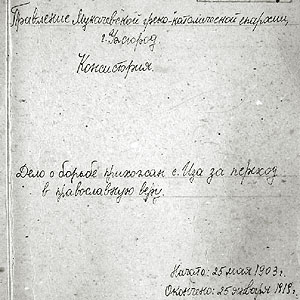 Правление Мукачевской греко-католической епархии,
г. Ужгород.
Консистория.
Дело о борьбе прихожан с. Иза за переход
в православную веру.
Начато: 25 мая 1903 г.
Окончено: 25 января 1919 г.